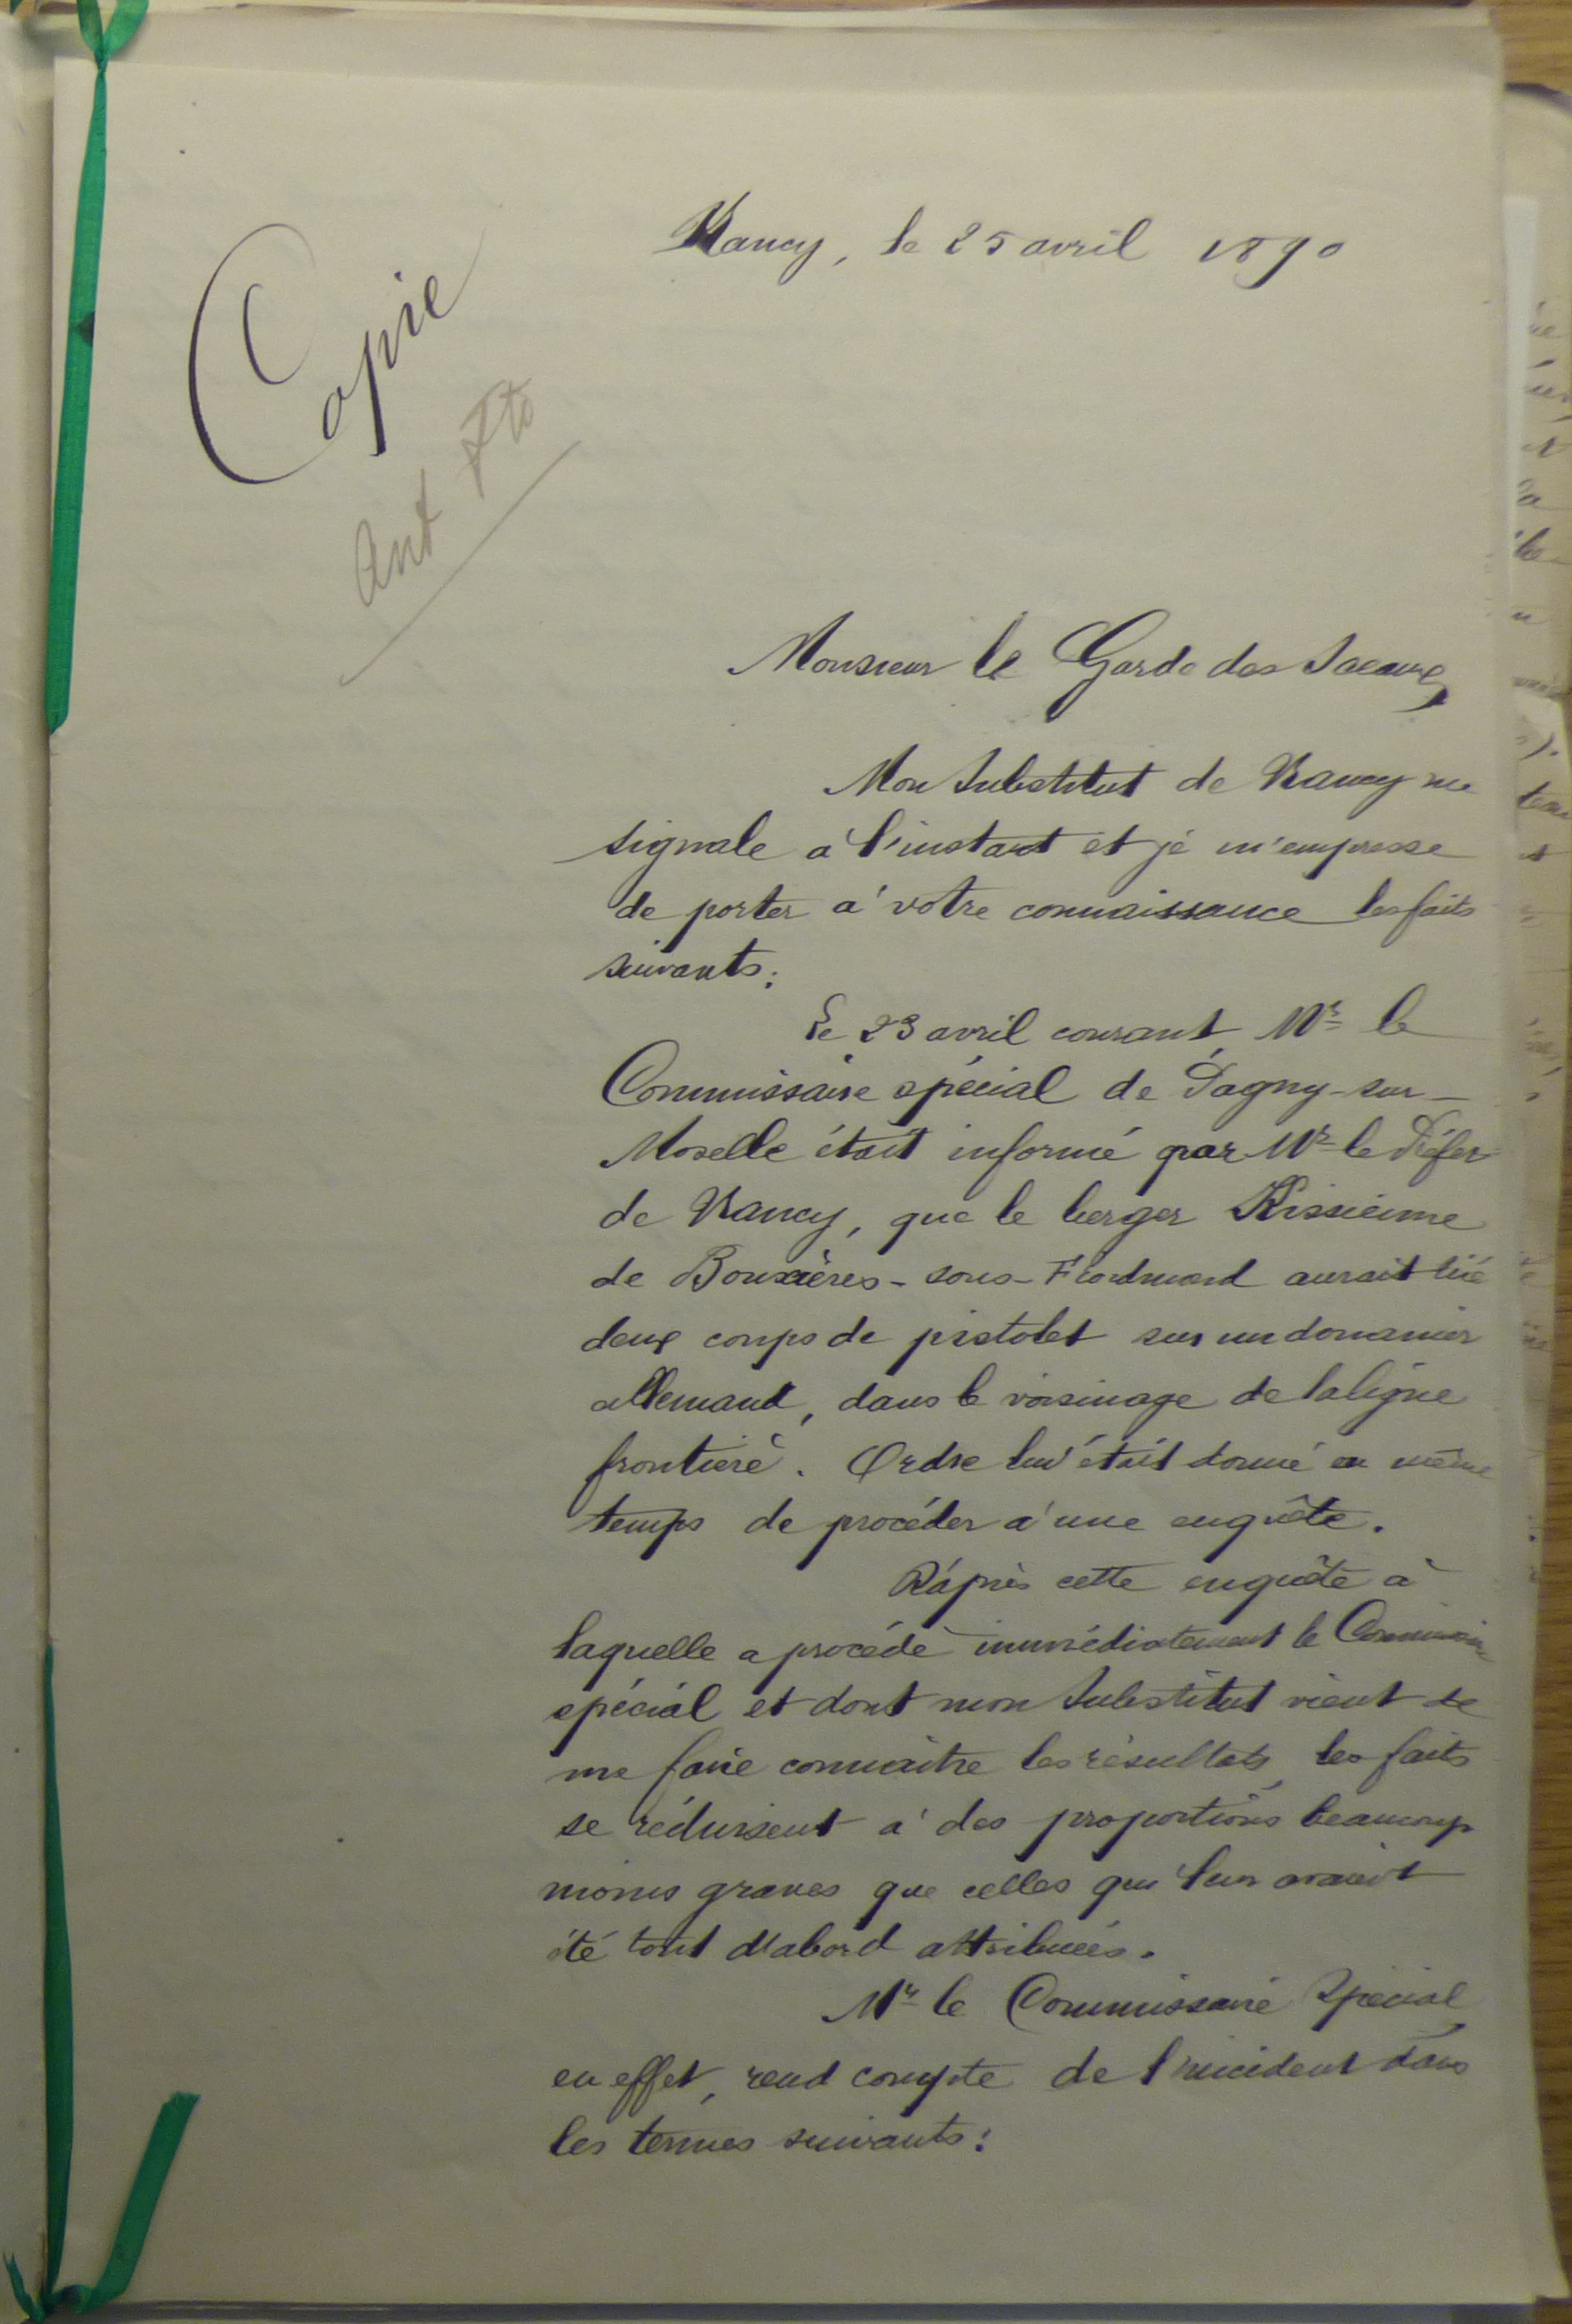 Nancy, le 25 avril 1890
Copie
Monsieur le Garde des Sceaux,
Mon Substitut de Nancy me
signale à l'instant et je m'empresse
de porter à votre connaissance les faits
suivants:
Le 23 avril courant, Mr le
Commissaire spécial de Pagny-sur-
Moselle était informé par Mr le Préfet
de Nancy, que le berger
de Bouxières-sous-Froidmond aurait tiré
deux coups de pistolet sur un douanier
allemand, dans le voisinage de la ligne
frontière. Ordre lui était donné en même
temps de procéder à une enquête.
D'après cette enquête à
laquelle a procédé immédiatement le Commissaire
spécial et dont mon Substitut vient de
me faire connaître les résultats, les faits
se réduisent à des proportions beaucoup
moins graves que celles qui leur avaient
été tout d'abord attribuées.
Mr le Commissaire Spécial,
en effet, rend compte de l'incident dans
les termes suivants: